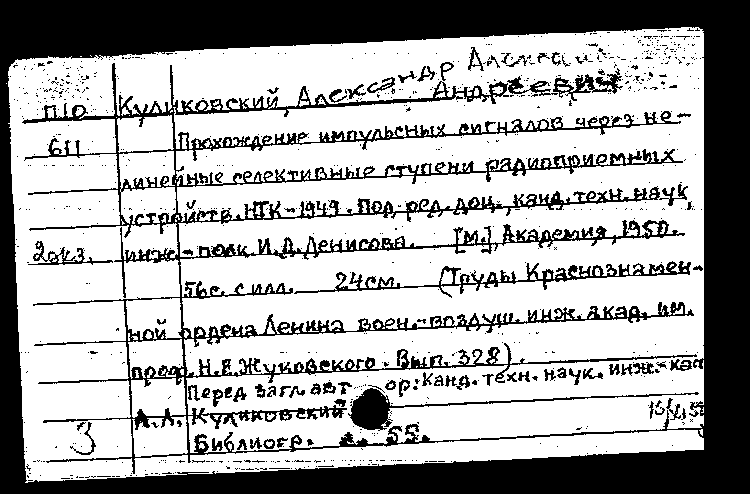 Алексан
П10 Куликовский, Александр Андреевич
611 Прохождение импульсных сигналов через не-
линейные селективные ступени радиоприемных
устройств. НТК-1949. Под ред. доц., канд. техн. наук,
2экз. инж.-полк. И.Д. Денисова. [М.], Академия, 1950.
56с. с илл. 24см. (Труды Краснознамен-
ной ордена Ленина воен.-воздуш. инж. акад. им.
проф. Н.Е. Жуковского. Вып. 328).
Перед загл. автор: канд. техн. наук. инж.-кап
А.А. Куликовский
3 Библиогр. с. 55.